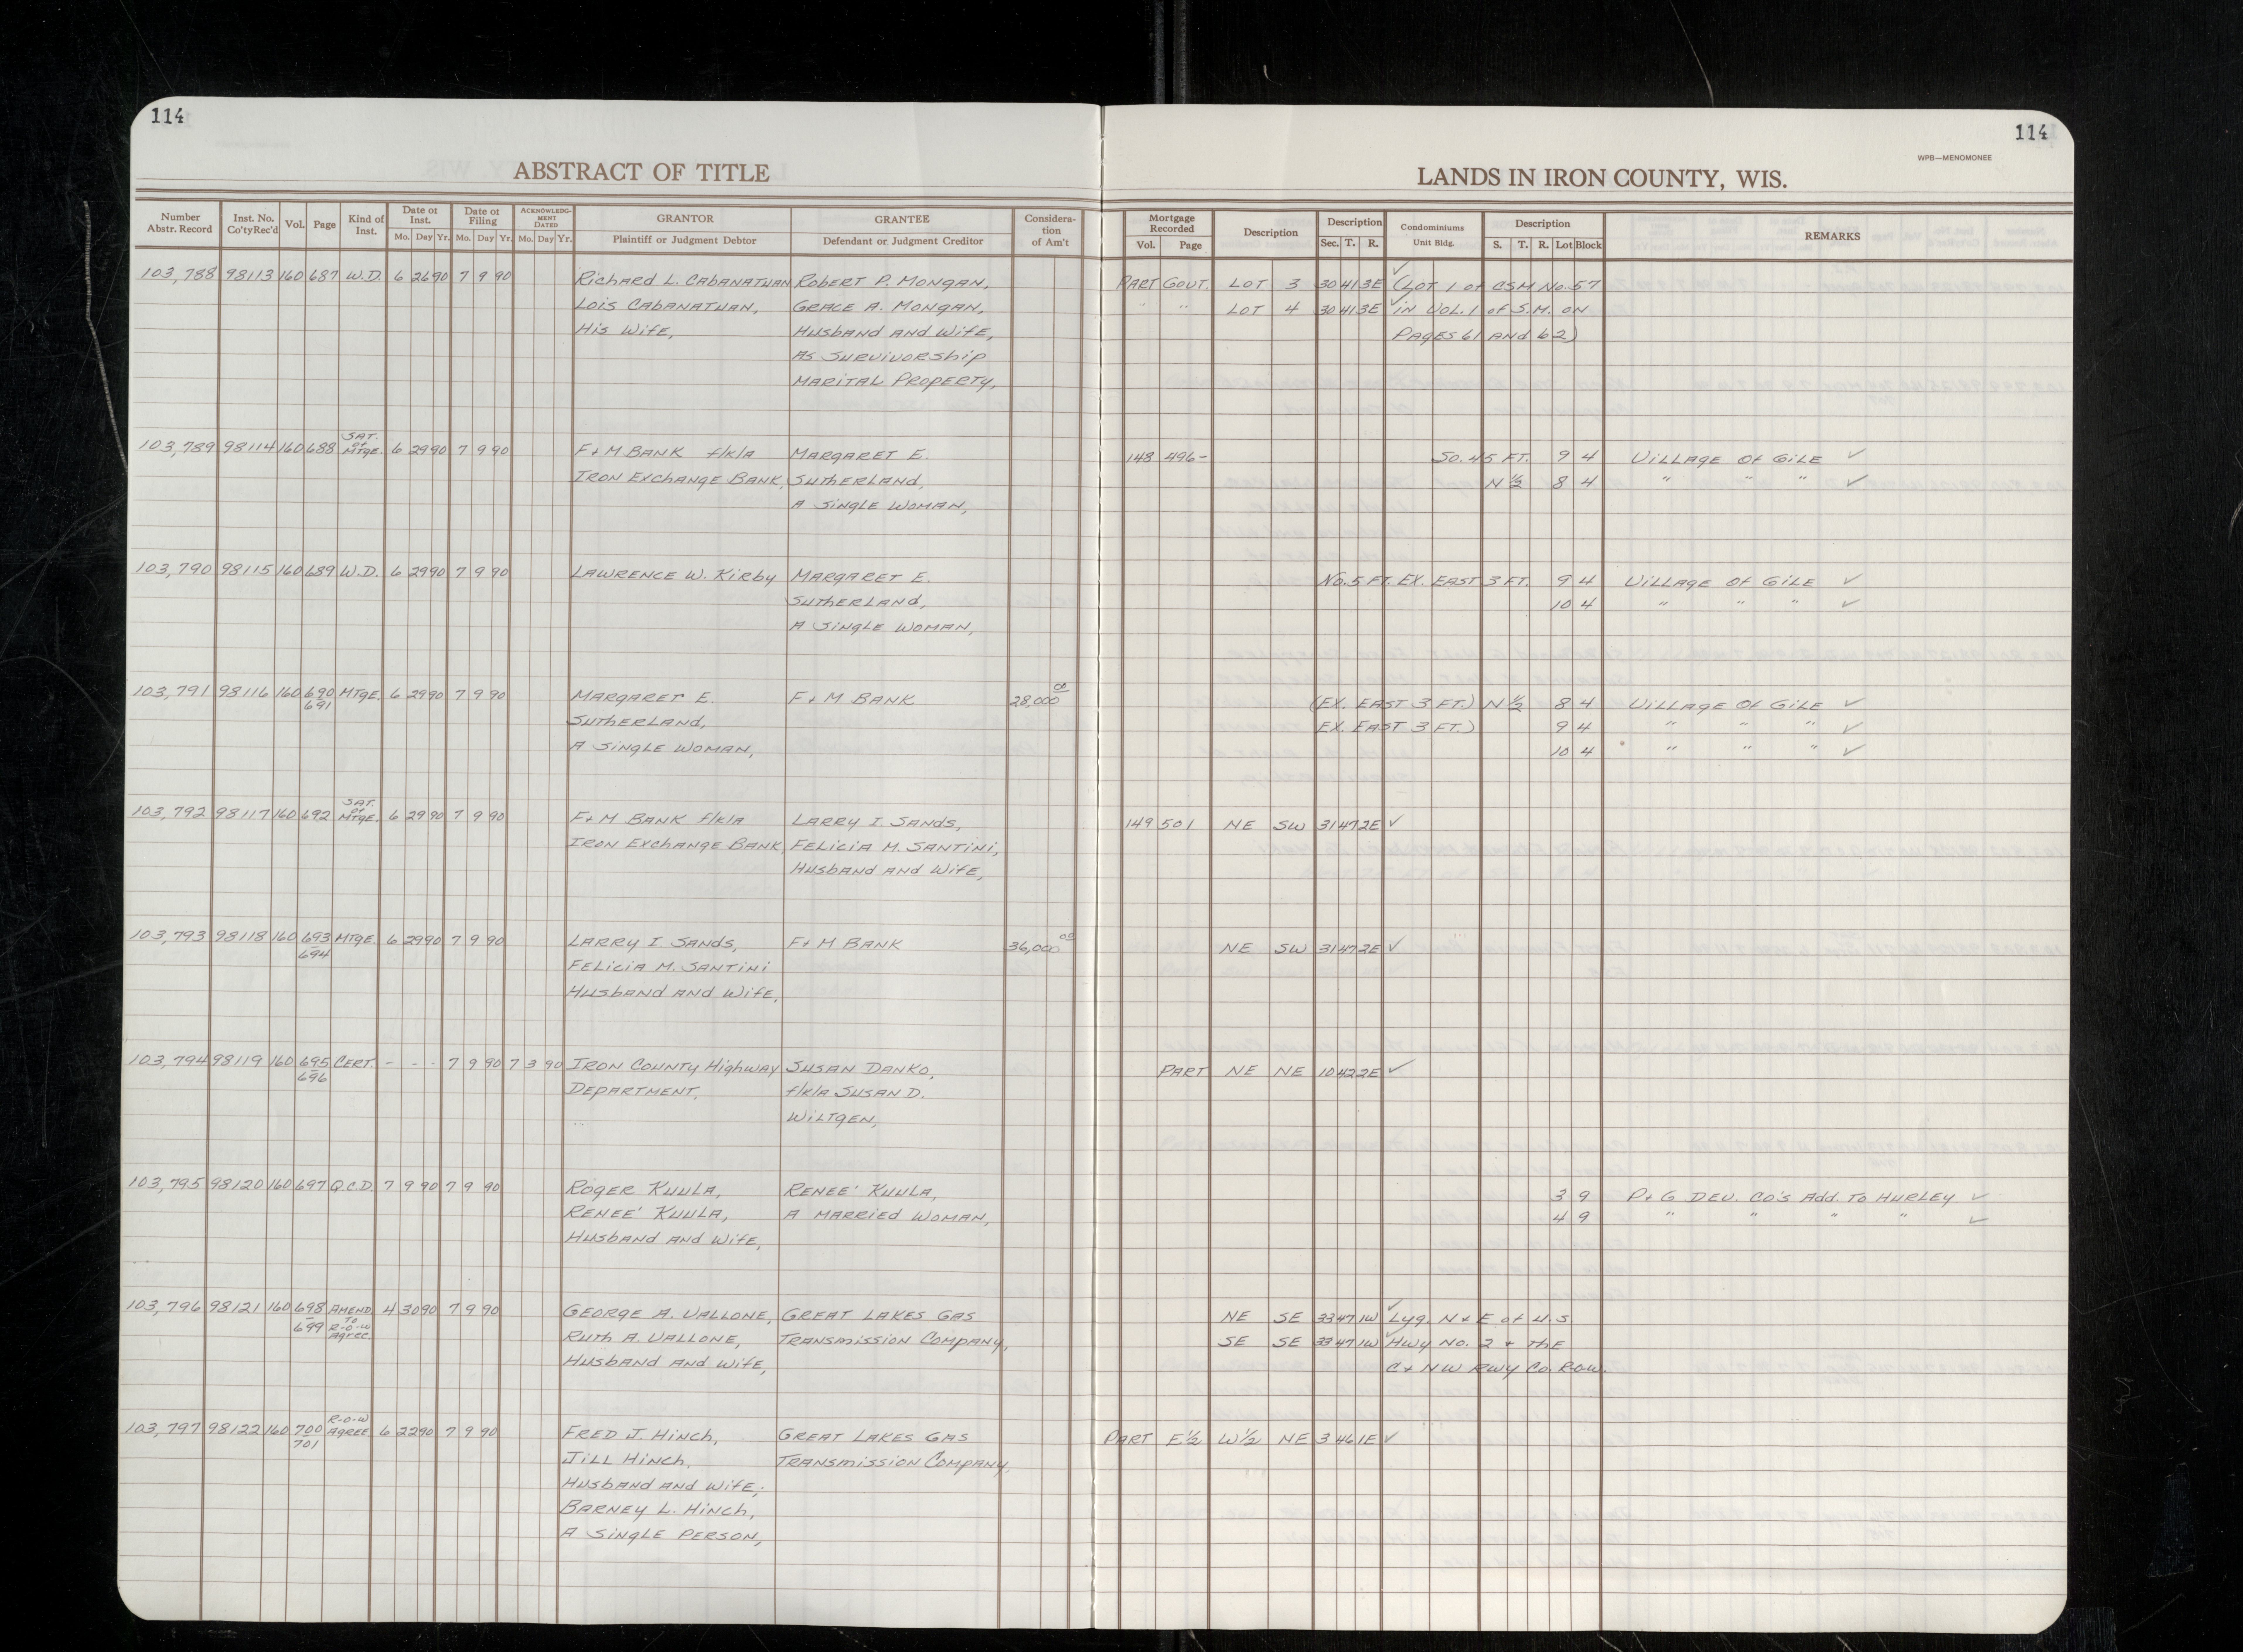 114
114
WPB—MENOMONEE
ABSTRACT OF TITLE
LANDS IN IRON COUNTY, WIS.
Number Abstr. Record | Inst. No. Co'ty Rec'd | Vol. | Page | Kind of Inst. | Date of Inst. Mo. Day Yr. | Date of Filing Mo. Day Yr. | ACKNOWLEDG-MENT DATED Mo. Day Yr. | GRANTOR Plaintiff or Judgment Debtor | GRANTEE Defendant or Judgment Creditor | Considera-tion of Am't | Mortgage Recorded Vol. Page | Description | Description Sec. T. R. | Condominiums Unit Bldg. | Description S. T. R. Lot Block | REMARKS
103,788 98113 160 687 W.D. 6 26 90 7 9 90 Richard L. Cabanatuan Robert P. Mongan, PART GOVT. LOT 3 30 41 3E (LOT 1 of CSM No. 57
Lois Cabanatuan, Grace A. Mongan, " " LOT 4 30 41 3E in VOL. 1 of S.M. on
His Wife, Husband and Wife, Pages 61 and 62)
As Survivorship
Marital Property,
103,789 98114 160 688 SAT. of MTGE. 6 29 90 7 9 90 F+M BANK f/k/a Margaret E. 148 496- So. 45 FT. 9 4 Village of Gile ✓
Iron Exchange Bank, Sutherland, N ½ 8 4 " " " ✓
A Single Woman,
103,790 98115 160 689 W.D. 6 29 90 7 9 90 Lawrence W. Kirby Margaret E. No. 5 FT. EX. EAST 3 FT. 9 4 Village of Gile ✓
Sutherland, 10 4 " " " ✓
A Single Woman,
103,791 98116 160 690 691 MTGE. 6 29 90 7 9 90 Margaret E. F+M BANK 28,000 00 (EX. EAST 3 FT.) N ½ 8 4 Village of Gile ✓
Sutherland, EX. EAST 3 FT.) 9 4 " " " ✓
A Single Woman, 10 4 " " " ✓
103,792 98117 160 692 SAT. of MTGE. 6 29 90 7 9 90 F+M BANK f/k/a Larry I Sands, 149 501 NE SW 31 47 2E ✓
Iron Exchange Bank, Felicia M. Santini,
Husband and Wife,
103,793 98118 160 693-694 MTGE. 6 29 90 7 9 90 Larry I Sands, F+M BANK 36,000 00 NE SW 31 47 2E ✓
Felicia M. Santini
Husband and Wife,
103,794 98119 160 695-696 CERT. - - - 7 9 90 7 3 90 Iron County Highway Susan Danko, PART NE NE 10 42 2E ✓
Department, f/k/a Susan D.
Wiltgen,
103,795 98120 160 697 Q.C.D. 7 9 90 7 9 90 Roger Kuula, Renee' Kuula, 3 9 P+G Dev. Co's Add. To Hurley ✓
Renee' Kuula, A Married Woman, 4 9 " " " " ✓
Husband and Wife,
103,796 98121 160 698-699 AMEND. TO R-O-W Agree. 4 30 90 7 9 90 George A. Vallone, Great Lakes Gas NE SE 33 47 1W ✓ Lyg. N+E of U.S
Ruth A. Vallone, Transmission Company, SE SE 33 47 1W ✓ Hwy No. 2 + The
Husband and Wife, C+NW Rwy Co. R.O.W.
103,797 98122 160 700 701 R-O-W AGREE 6 22 90 7 9 90 Fred J. Hinch, Great Lakes Gas PART E½ W½ NE 3 46 1E ✓
Jill Hinch, Transmission Company,
Husband and Wife;
Barney L. Hinch,
A Single Person,